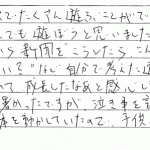 でたくさん遊ぶことがで
ても遊ぼうと思いました
ら新聞をこうしたら こん
い？"など自分で考えた遊
て 成長したなぁと感じ
暑かったですが、泣き事を言
を動かしていたので、子供